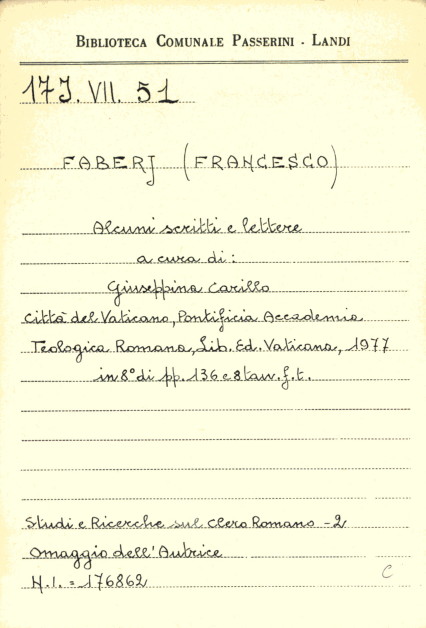 BIBLIOTECA COMUNALE PASSERINI - LANDI
17J. VII. 51
FABERJ (FRANCESCO)
Alcuni scritti e lettere
a cura di:
Giuseppina Carillo
Città del Vaticano, Pontificia Accademia
Teologica Romana, Lib. Ed. Vaticana, 1977
in 8° di pp. 136 e 8 tav. f. t.
Studi e Ricerche sul Clero Romano - 2
Omaggio dell'Autrice
N.I. = 176862
C